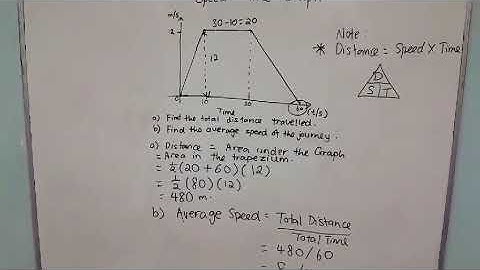 m/s
30-10=20
12
12
0
10
30
60
(t/s)
Time
Note:
* Distance = Speed x Time
D
S T
a) Find the total distance travelled.
b) Find the average speed of the journey.
a) Distance = Area under the Graph
= Area in the trapezium.
= 1/2 (20+60)(12)
= 1/2 (80)(12)
= 480 m.
b) Average Speed = Total Distance
Total Time
= 480/60